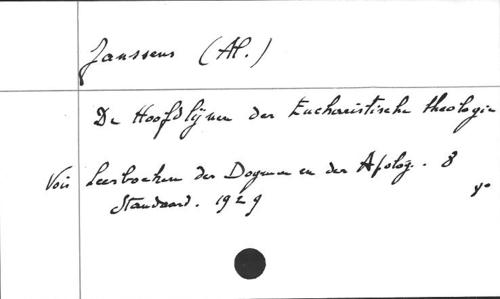 Janssens (Al.)
De Hoofdlijnen der Eucharistische theologie
Vois Leerboeken der Dogma en der Apolog. 8
Standaard. 1929 8°